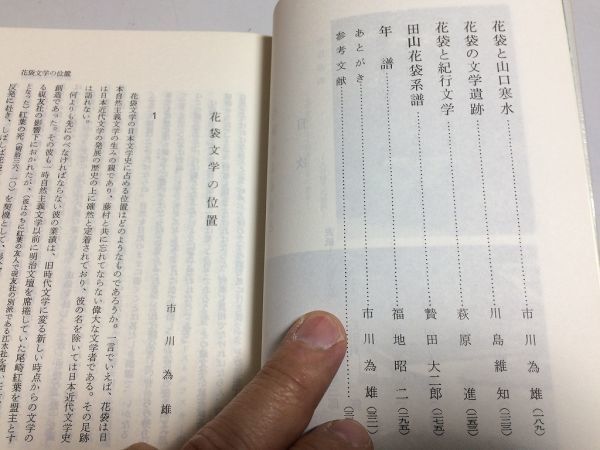 花袋と山口寒水……市川為雄(一八九)
花袋の文学遺跡……川島維知(二二三)
花袋と紀行文学……萩原進(二五三)
田山花袋系譜……贄田大二郎(二七五)
年譜……福地昭二(二九五)
あとがき……市川為雄(三二一)
参考文献
花袋文学の位置
花袋文学の位置
市川為雄
1
花袋文学の日本文学史に占める位置はどのようなものであろうか。一言でいえば、花袋は日
本自然主義文学の生みの親であり、藤村と共に忘れてならない偉大な文学者である。その足跡
は日本近代文学の発展の歴史の上に確然と定着されており、彼の名を除いては日本近代文学史
は語れない。
何よりも先にのべなければならない彼の業績は、旧時代文学に変る新しい時点からの文学の
創造であった。その彼も一時自然主義文学以前に明治文壇を席捲していた尾崎紅葉を盟主とす
る硯友社の影響下におかれたが、(彼はのちに紅葉の友人で硯友社の別派である江水社を開い
となった)紅葉の死(明治三六、一〇)を契機として、
反発に赴き、しばしば